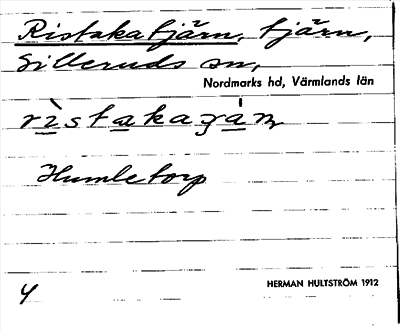 Ristakatjärn, tjärn,
Silleruds sn,
Nordmarks hd, Värmlands län
rìstakaʒá̈n
Humletorp
4
HERMAN HULTSTRÖM 1912